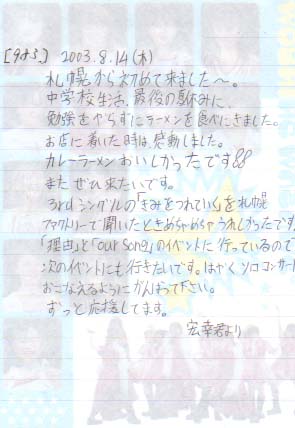 2003.8.14(木)
札幌から初めて来ました〜。
中学校生活、最後の夏休みに、
勉強をやらずにラーメンを食べにきました。
お店に着いた時は、感動しました。
カレーラーメンおいしかったです
またぜひ来たいです。
3rdシングルの「きみをつれていく」を札幌
ファクトリーで聞いたときめちゃめちゃうれしかったです
「理由」と「our song」のイベントに行っているので
次のイベントにも行きたいです。はやくソロコンサート
おこなえるようにがんばって下さい。
ずっと応援してます。
宏幸君より